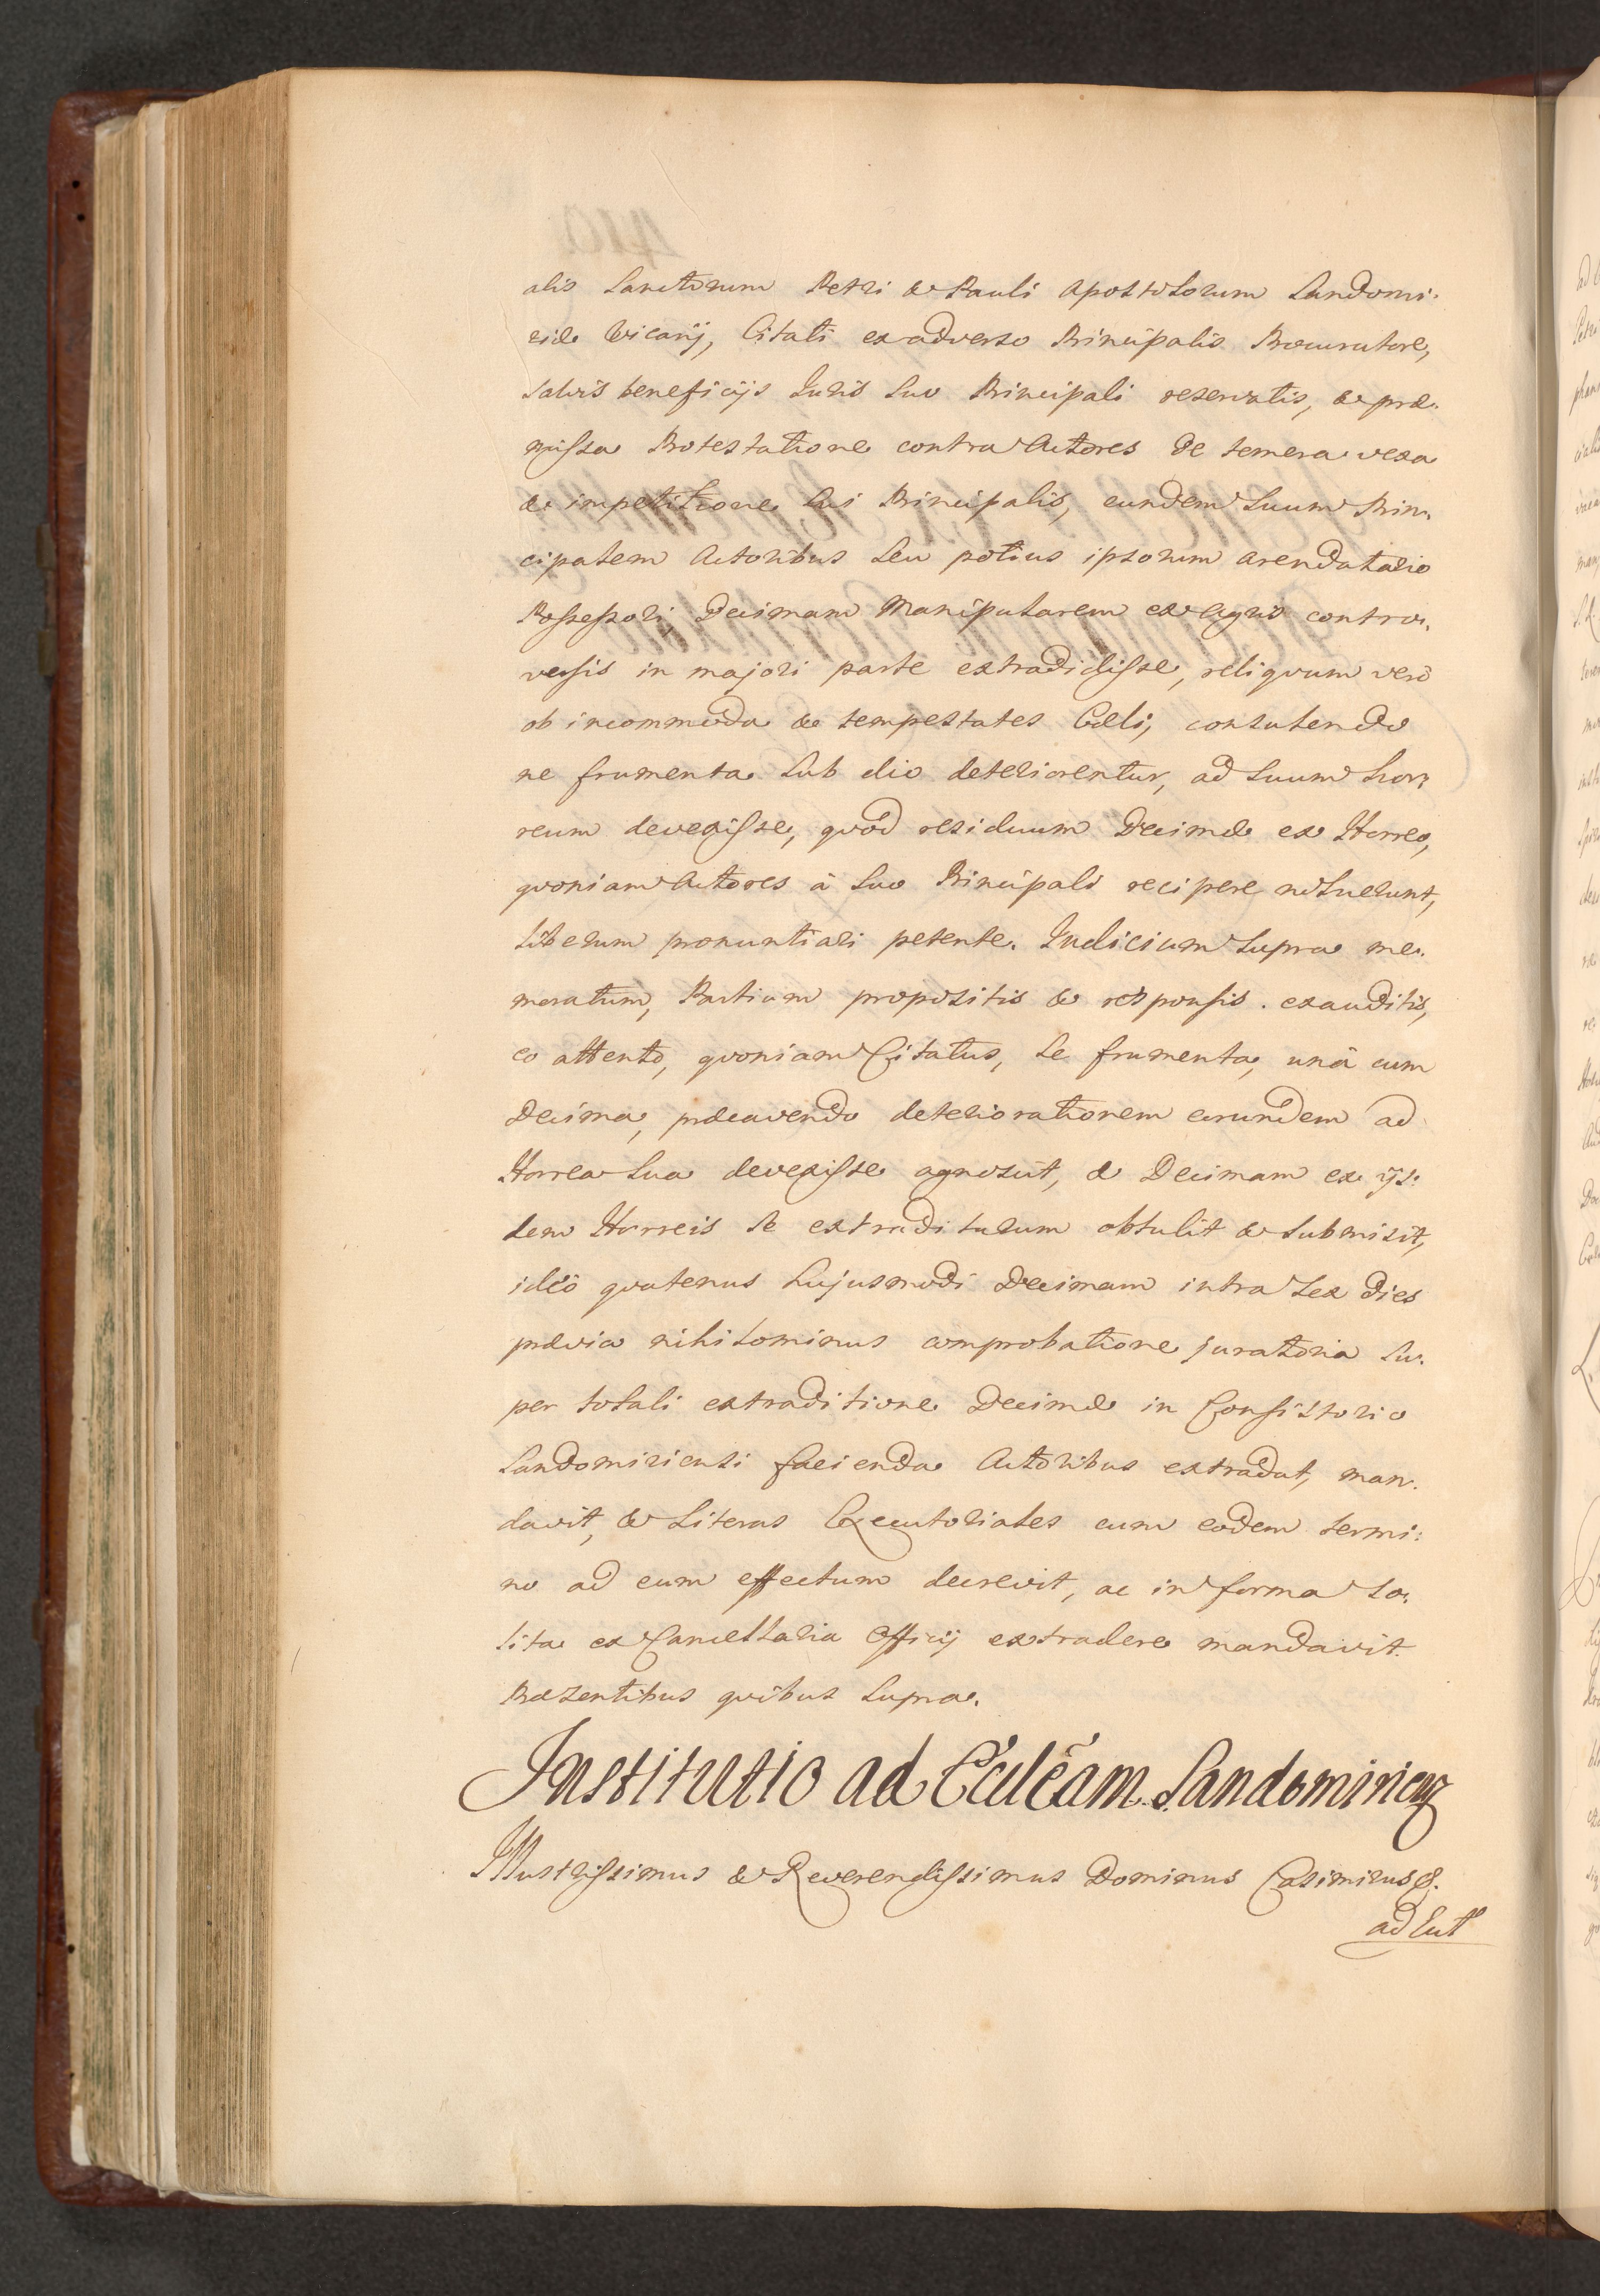 alis Sanctorum Petri & Pauli Apostolorum Sandomi-
riæ Vicarij, Citati ex adverso Principalis Procuratore,
Salvis beneficijs Juris Suo Principali reservatis, & præ-
missa Protestatione contra Actores de temera vexa
& impetitione Sui Principalis, eundem Suum Prin-
cipalem Actoribus Seu potius ipsorum arendatario
Possessori Decimam Manipularem ex Agris contro-
versis in majori parte extradidisse, reliquum verò
ob incommoda & tempestates Cœli, consulendo
ne frumenta Sub dio deteriorentur, ad Suum hor-
reum devexisse, quòd residuum Decimæ ex Horreo,
quoniam Actores à Suo Principali recipere noluerunt,
liberum pronuntiari petente. Judicium Supra me-
moratum, Partium propositis & responsis exauditis,
eo attento, quoniam Citatus, Se frumenta, unà cum
Decima, præcavendo deteriorationem eorundem ad
Horrea Sua devexisse agnovit, & Decimam ex ijs-
dem Horreis Se extraditurum obtulit & Submisit,
ideò quatenus hujusmodi Decimam intra Sex dies
prævia nihilominus comprobatione juratoria Su-
per totali extraditione Decimæ in Consistorio
Sandomiriensi facienda Actoribus extradat, man-
davit, & Literas Executoriales cum eodem termi-
no ad eum effectum decrevit, ac in forma So-
lita ex Cancellaria Officij extradere mandavit.
Præsentibus quibus Supra.
Institutio ad Eccleãm Sandomirien
Illustrissimus & Reverendissimus Dominus Casimirus